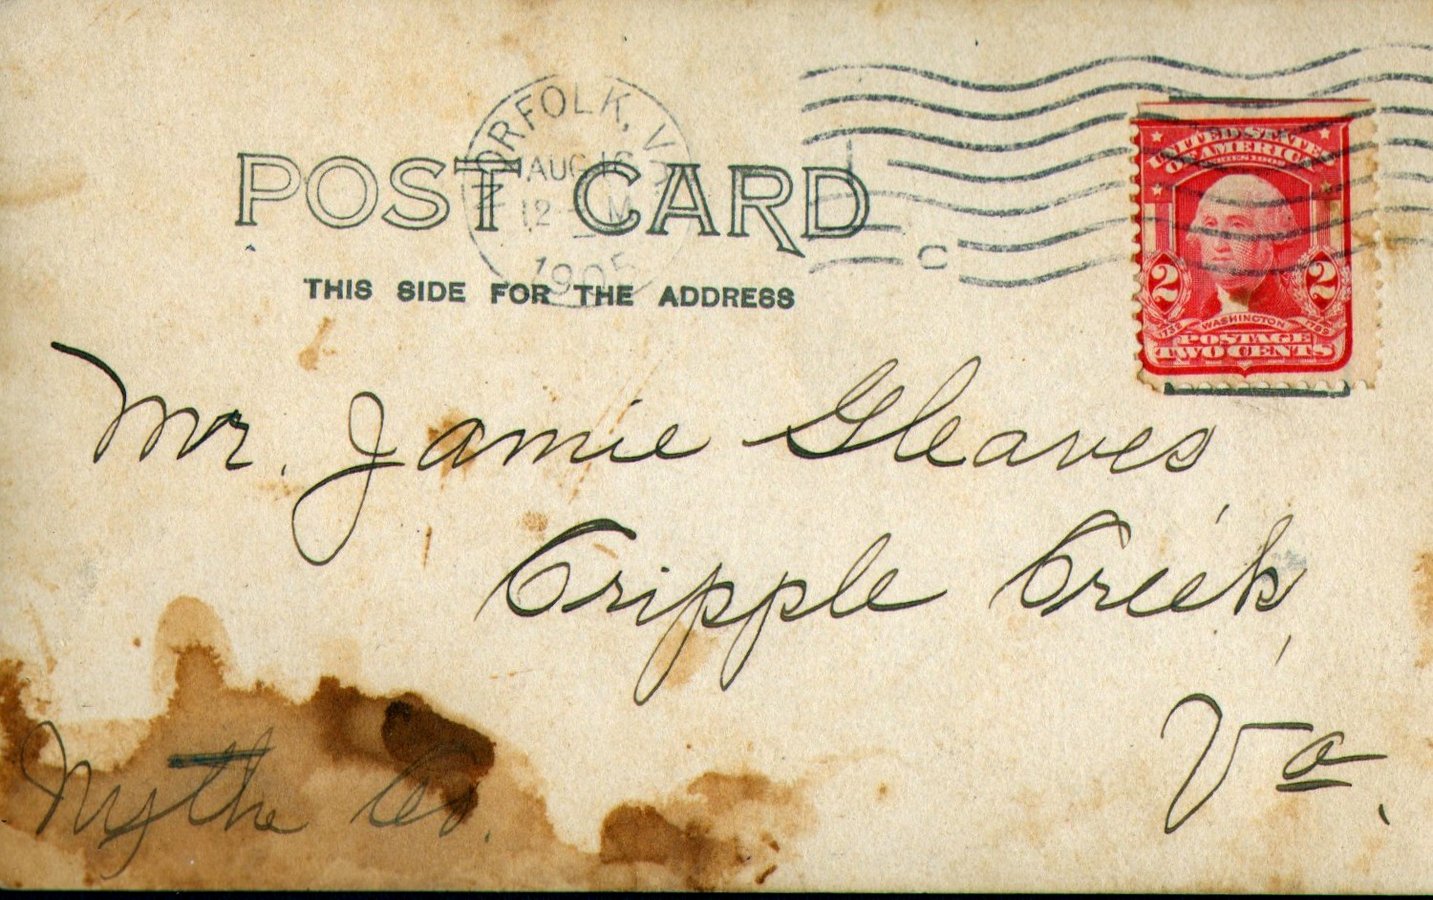 NORFOLK, VA.
AUG 16
12 - M
1905
C
POST CARD
THIS SIDE FOR THE ADDRESS
UNITED STATES
OF AMERICA
SERIES 1902
2 2
1732 WASHINGTON 1799
POSTAGE
TWO CENTS
Mr. Jamie Gleaves,
Cripple Creek,
Va.
Wythe Co.